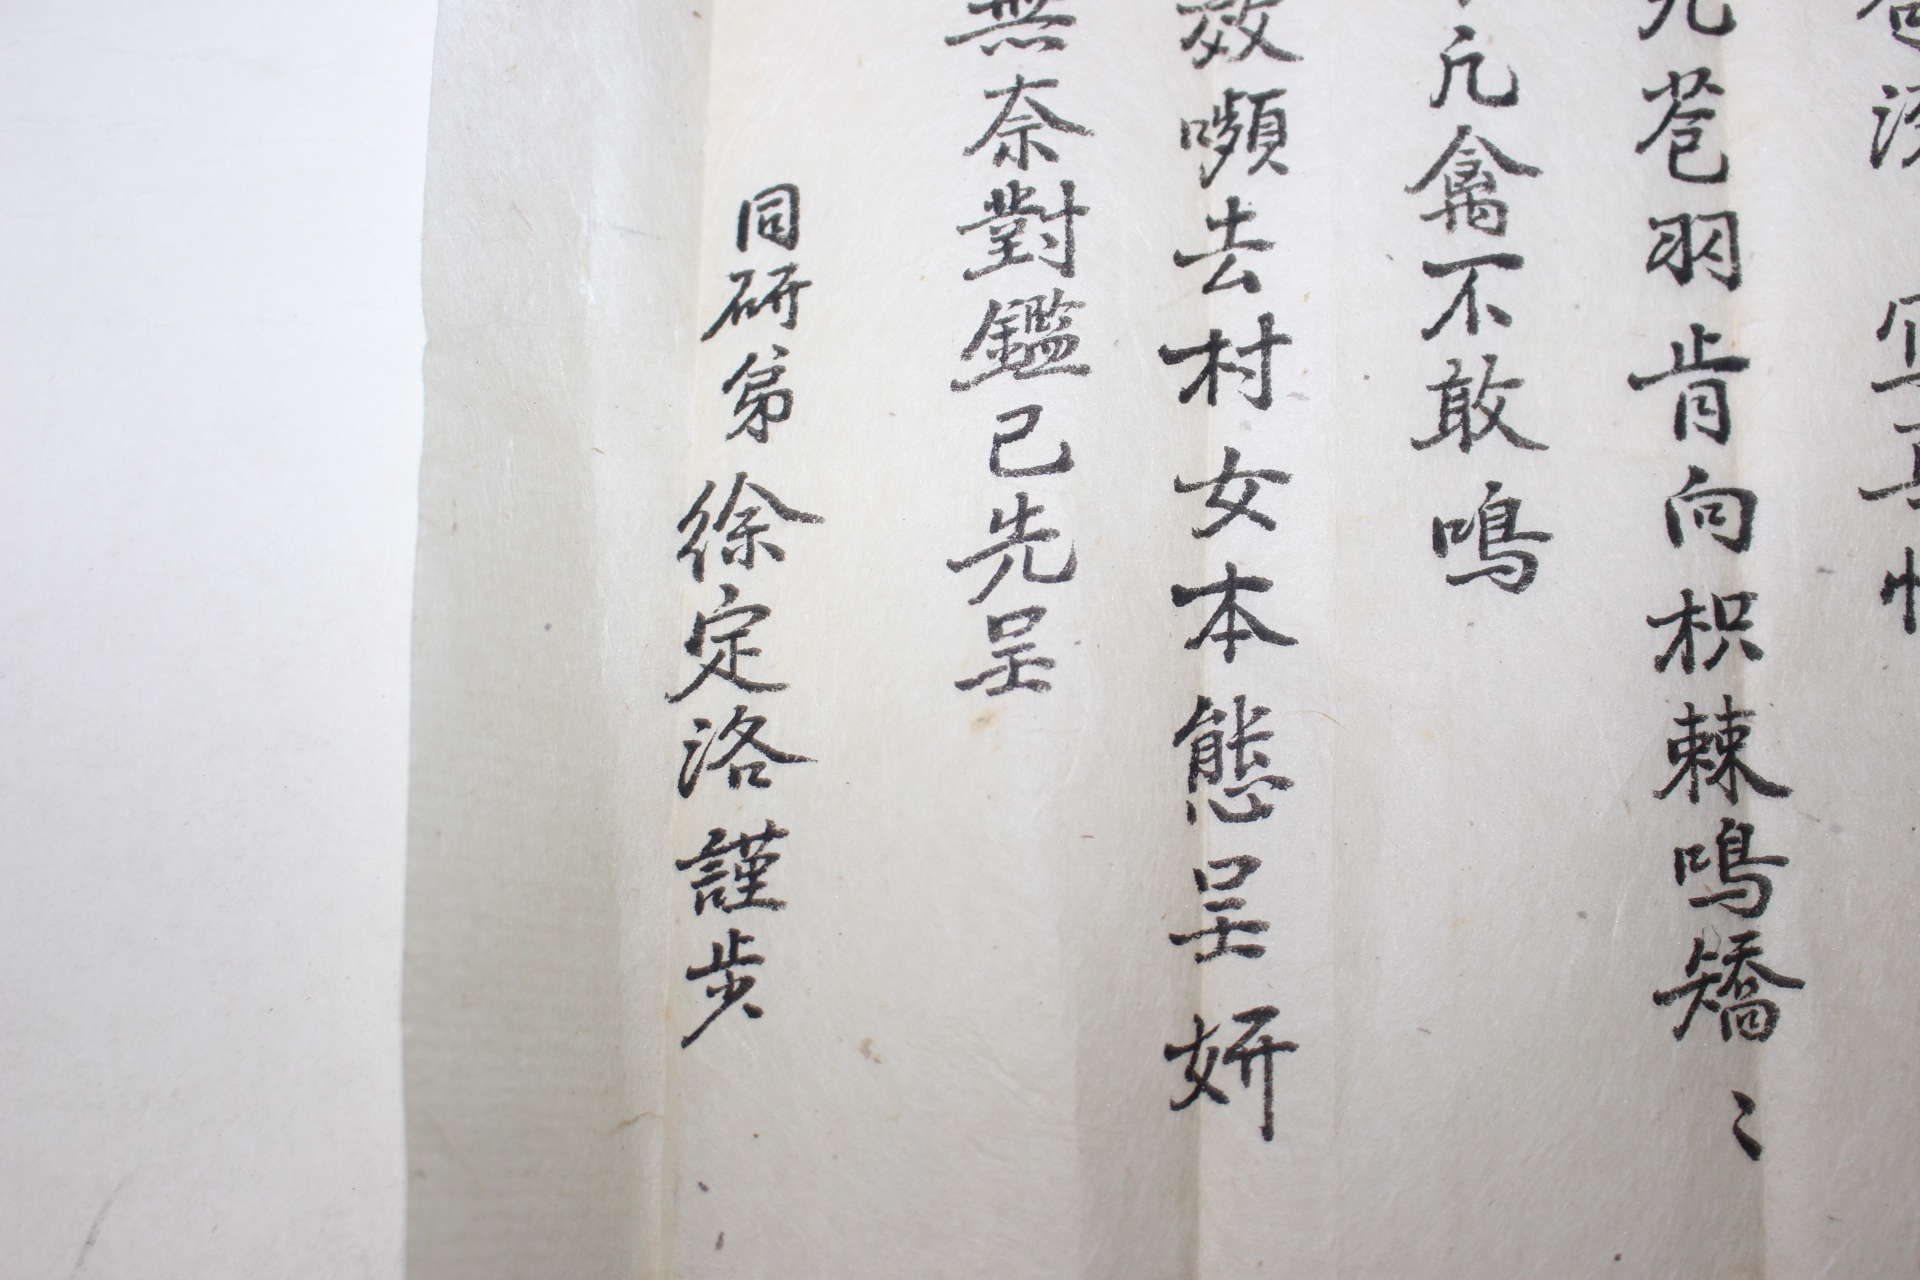 羽肯向枳棘鳴矯〻
凡禽不敢鳴
效嚬去村女本態呈妍
無奈對鑑已先呈
同硏弟徐定洛謹步